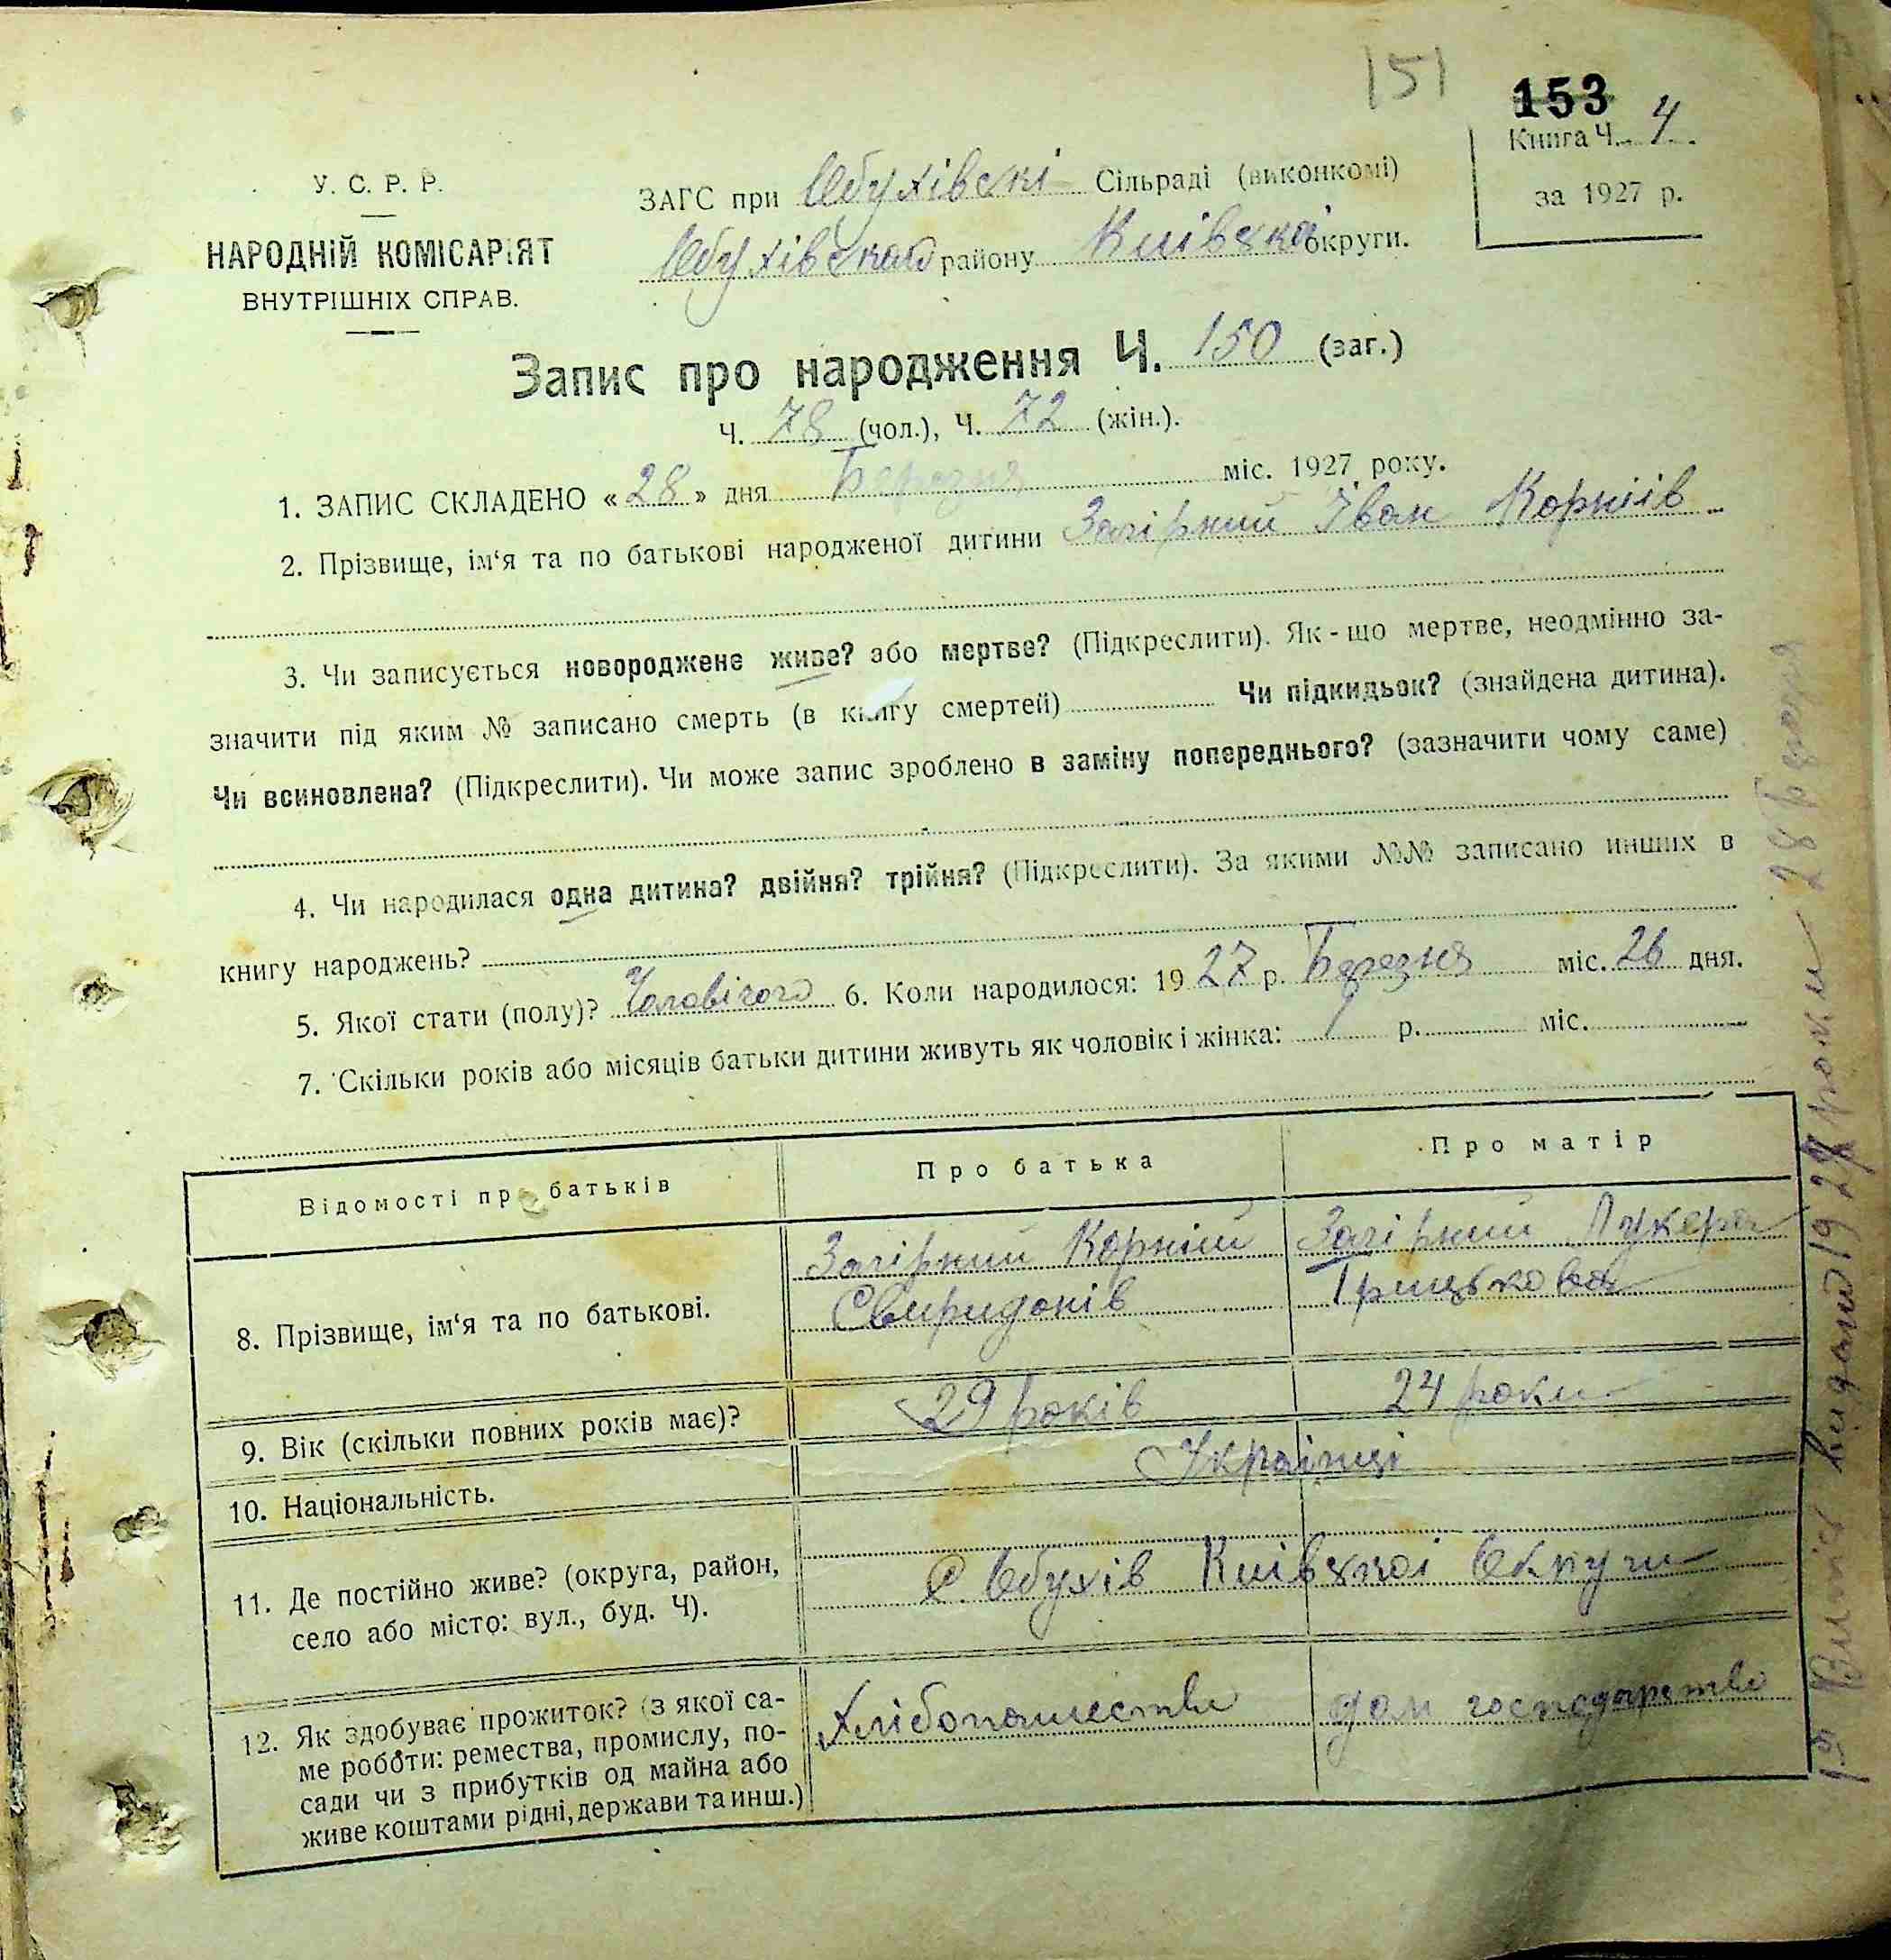 151
153
Книга Ч. 4
за 1927 р.
У. С. Р. Р.
НАРОДНІЙ КОМІСАРІЯТ
ВНУТРІШНІХ СПРАВ.
ЗАГС при Обухівскі Сільраді (виконкомі)
Обухівского району Київскоі округи.
Запис про народження Ч. 150 (заг.)
Ч. 78 (чол.), Ч. 72 (жін.).
1. ЗАПИС СКЛАДЕНО «28» дня Березня міс. 1927 року.
2. Прізвище, ім‘я та по батькові народженої дитини Загірний Іван Корніів
3. Чи записується новороджене живе? або мертве? (Підкреслити). Як-що мертве, неодмінно за-
значити під яким № записано смерть (в книгу смертей) Чи підкидьок? (знайдена дитина).
Чи всиновлена? (Підкреслити). Чи може запис зроблено в заміну попереднього? (зазначити чому саме)
4. Чи народилася одна дитина? двійня? трійня? (Підкреслити). За якими №№ записано инших в
книгу народжень?
5. Якої стати (полу)? Чоловічого 6. Коли народилося: 1927 р. Березня міс. 26 дня.
7. Скільки років або місяців батьки дитини живуть як чоловік і жінка: 9 р. міс.
Відомості про батьків
Про батька
Про матір
8. Прізвище, ім‘я та по батькові.
Загірний Корній
Свиридонів
Загірний Лукера
Грицькова
9. Вік (скільки повних років має)?
29 років
24 роки
10. Національність.
Украінці
11. Де постійно живе? (округа, район,
село або місто: вул., буд. Ч).
С. Обухів Київскоі Округи
12. Як здобуває прожиток? (з якої са-
ме роботи: ремества, промислу, по-
сади чи з прибутків од майна або
живе коштами рідні, держави та инш.)
Хлібопашество
дом господарство
Випис видано 1927 роки 28 Березня